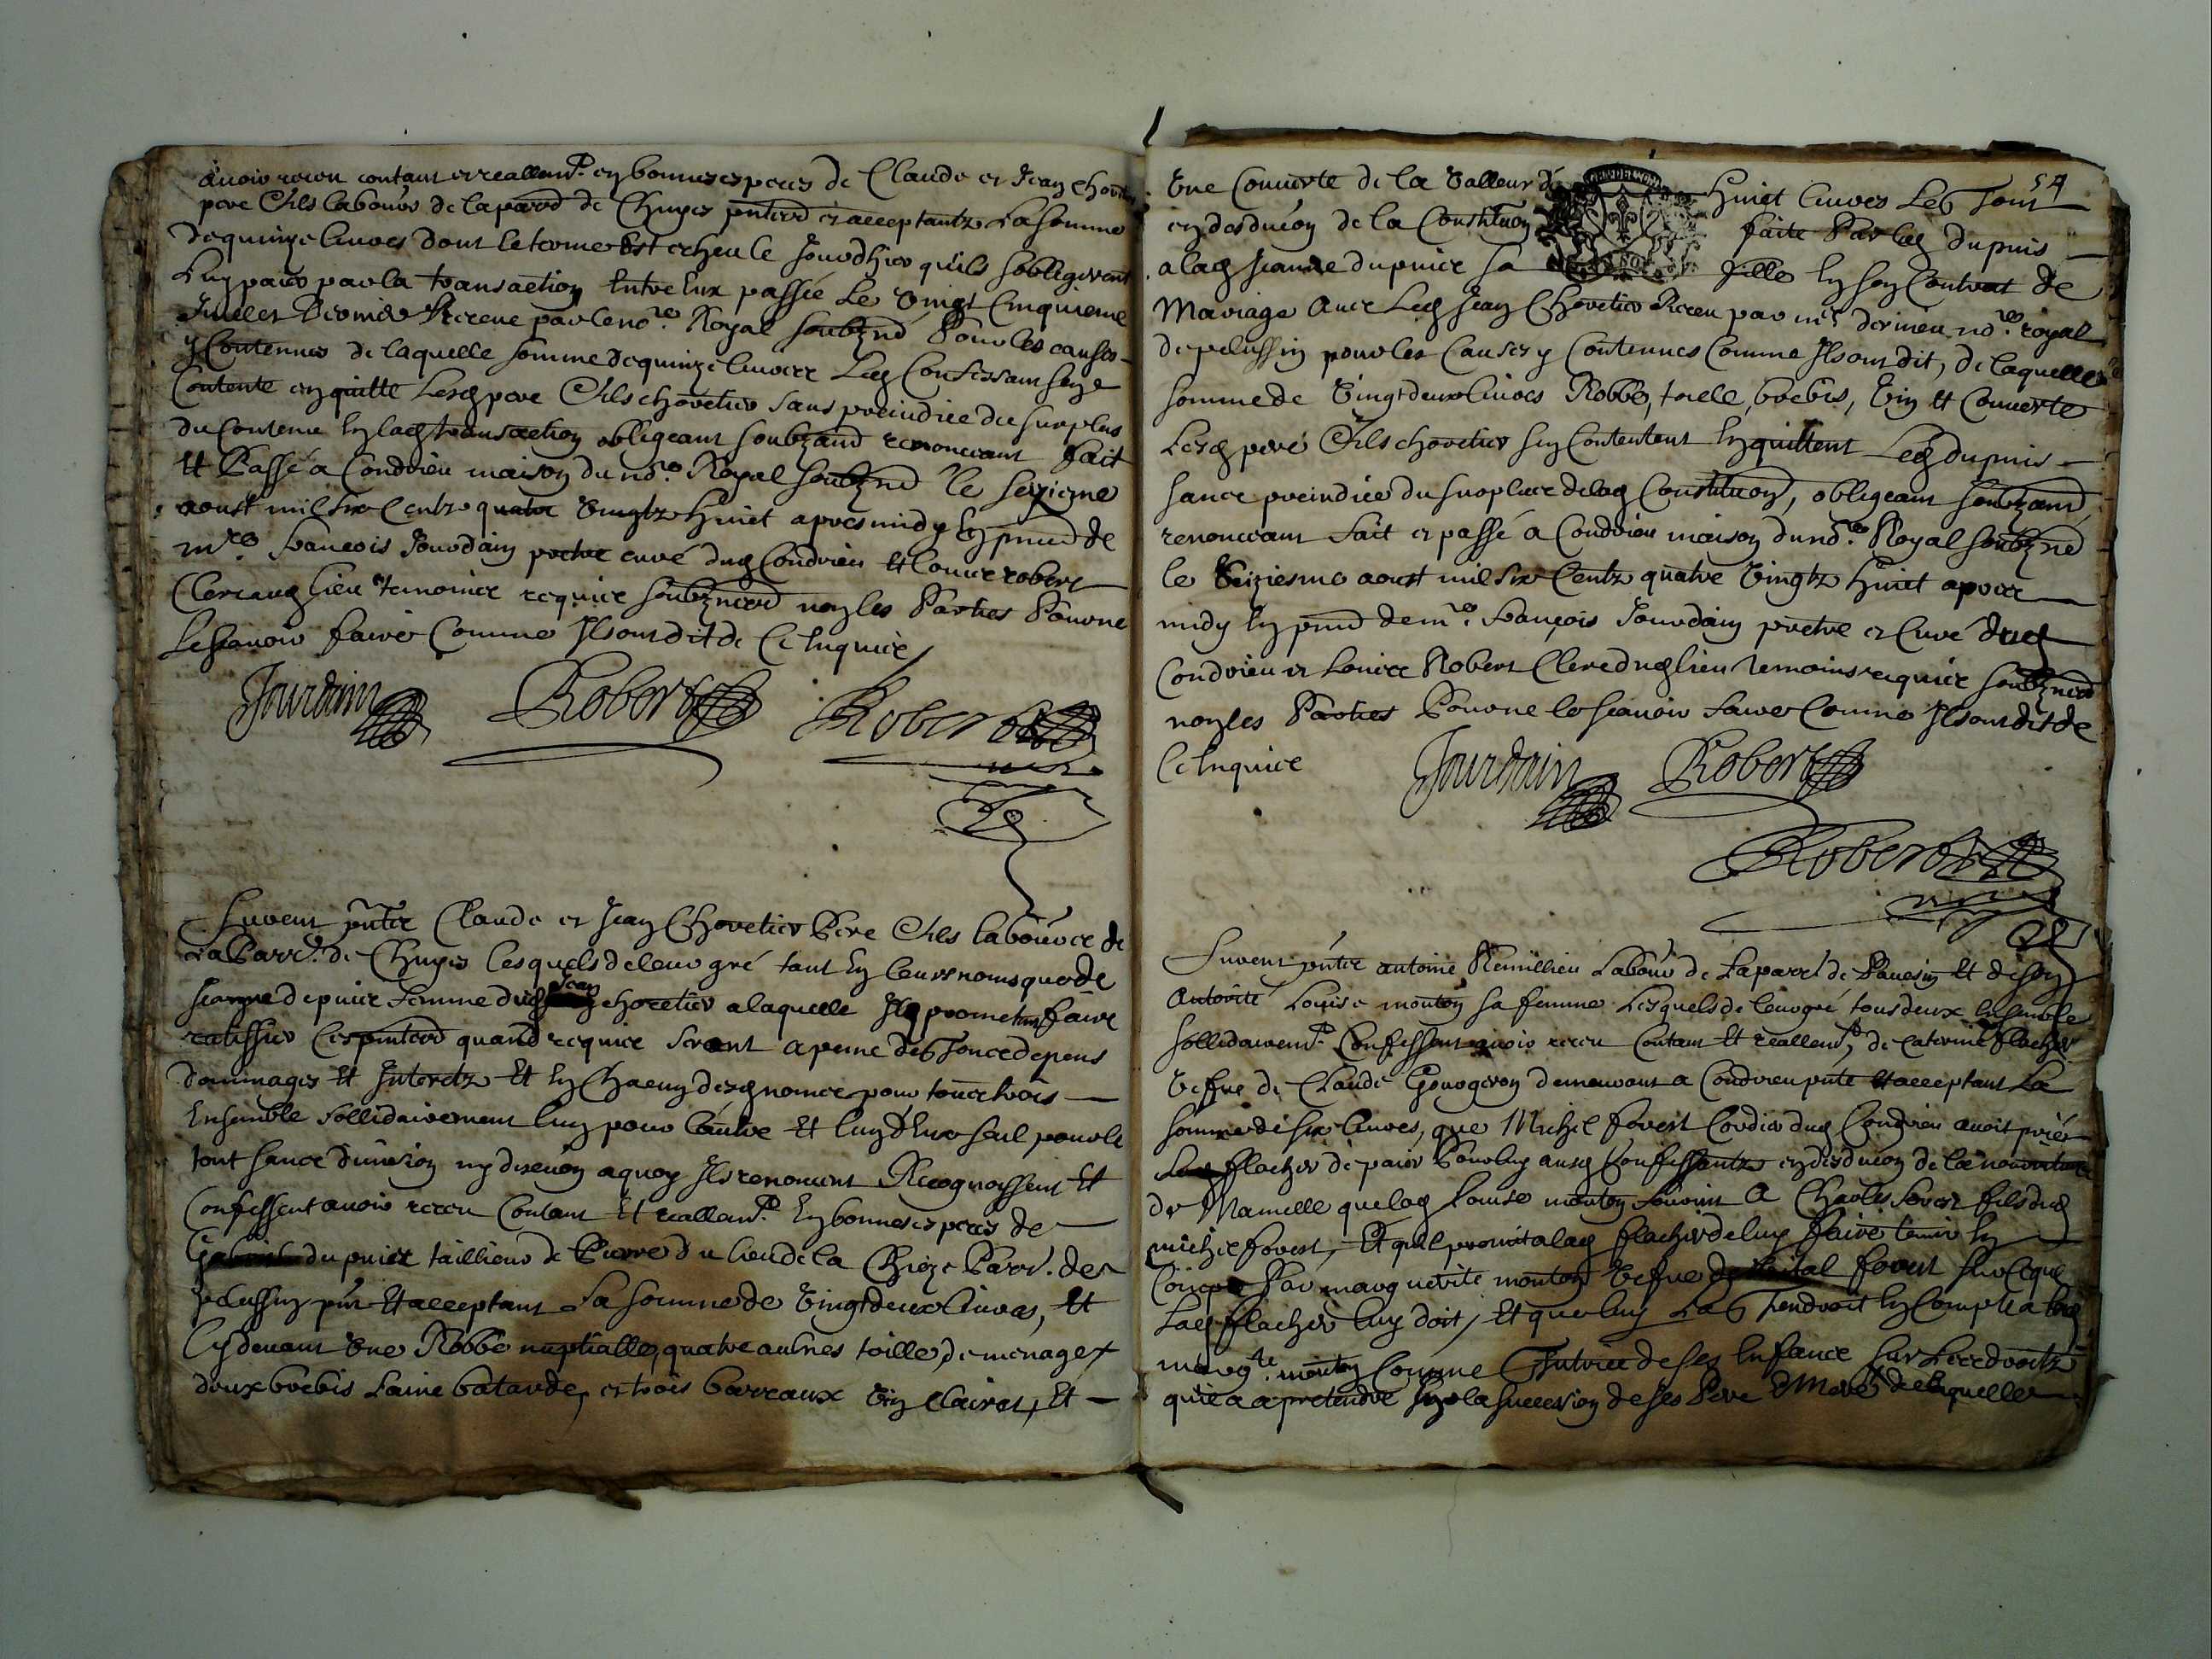 avoir receu contant et reallemt en bonnes especes de Claude et Jean Chovetier
pere & fils labours de la parrd de Chuyes pnteed et acceptantz La somme
de quinze livres dont le terme Est escheu le Jourdhier quils sobligerent
Luy paier par la transaction Entre Eux passée Le vingt Cinquieme
Juillet dernier Receue par le nore Royal soubzné Pour les causes
y Contenues de laquelle somme de quinze livres Led Confessant se
Contente en quitte Lesd pere & fils chovetier sans preiudice du surplus
du Contenu En lad transaction obligeant soubzand renonceant fait
Et Passé a Condrieu maison du nore Royal soubzné le seizieme
aoust mil six Centz quatre vingtz huict apres midy En pnce de
mre francois Jourdain pretre curé dud Condrieu Et Louis robert
Clerc aud lieu temoins requis soubznéed non les Parties Pour ne
le scavoir faire Comme Ils ont dit de Ce Enquis
Jourdain Robert Robert
Furent pntz Claude et Jean Chovetier Pere & fils labours de
La Parrd de Chuyes lesquels de leur gré tant En leurs noms que de
Jeanne dupuis femme dud Jean chovetier a laquelle Ils promettent faire
ratiffier Ces pnteed quand requis seront a peine de tous depens
dommages Et Interetz Et En Chacun desd noms pour tous trois
Ensemble sollidairement lun pour lautre Et lun dEux seul pour le
tout sans division ny discution a quoy Ils renoncent Recognoissent Et
Confessent avoir receu Contant Et reallemt En bonnes especes de
dupuis tailleur de Pierre du lieu de la Chieze Parr. de
pelussin pnt Et acceptant La somme de vingt deux livres, Et
Cy devant vne Robbe nuptialle, quatre aulnes toille de menage
deux brebis Laine batarde, et trois barreaux vin clairet, Et
54
vne Couverte de la valleur de huict livres Le tout
en desduction de la Constitution faite Par led dupuis
a lad Jeanne dupuis sa fille En son Contrat de
Mariage avec Led Jean Chovetier Receu par me dermieu nore royal
de pelussin pour les Causes y Contenues Comme Ils ont dit, de laquelle
somme de vingt deux livres Robbe, toille, brebis, vin Et Couverte
Lesd pere & fils chovetier sen Contentent En quittent Led dupuis
sans preiudice du surplus de lad Constitution, obligeant soubzand
renonceant fait et passé a Condrieu maison du nore Royal soubzné
le seiziesme aoust mil six Centz quatre vingtz huict apres
midy En pnce de mre francois Jourdain pretre et Curé dud
Condrieu et Louis Robert Clerc dud lieu temoins requis soubznéed
non les Parties Pour ne le scavoir faire Comme Ils ont dit de
Ce Enquis Jourdain Robert
Robert
Furent pntz antoine Remillieu Labour de La parrd de Pavesin Et de son
autorité Louise monton sa femme Lesquels de leur gré tous deux Ensemble
sollidairemt Confessent avoir receu Contant Et reallemt de Caterine flacher
vefve de Claude Gourgeron demeurant a Condrieu pnte Et acceptant La
somme de six livres, que Michel forest Cordier dud Condrieu avoit prié
flacher de paier Pour luy ausd Confessantz en desduction de la nourriture
de Mamelle que lad Louise monton fournit a Charles forest fils dud
michel forest, Et quil promit a lad flacher de luy faire tenir En
Compte Par marguerite monton vefve forest sur Ce que
Lad flacher luy doit, Et que luy Le tiendroit En Compte a lad
margte monton Comme Tutrice de ses Enfance sur Les droitz
quil a a pretendre sur la succession de ses Pere & Mere, de laquelle